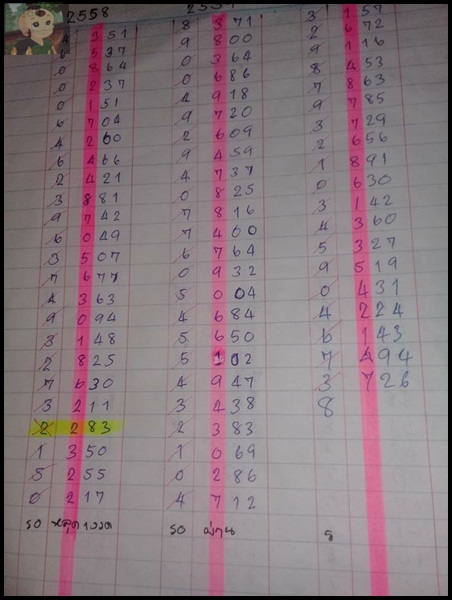 2558
351
537
0 864
0 237
0 151
6 704
4 260
6 466
2 421
3 881
9 742
6 049
3 507
7 677
4 363
9 094
3 148
2 825
7 630
3 211
2 283
1 350
5 255
0 217
รอ หลุดงวด
8 371
9 800
0 364
0 686
4 918
9 720
2 609
9 459
4 737
0 825
7 816
7 400
6 764
0 932
5 004
4 684
5 650
5 102
4 947
3 438
2 383
1 069
0 286
4 712
รอ ผ่าน
3 157
2 672
9 116
8 453
7 863
9 785
3 729
2 656
1 891
0 630
3 142
4 360
5 327
9 519
0 431
4 224
6 143
7 494
3 726
8